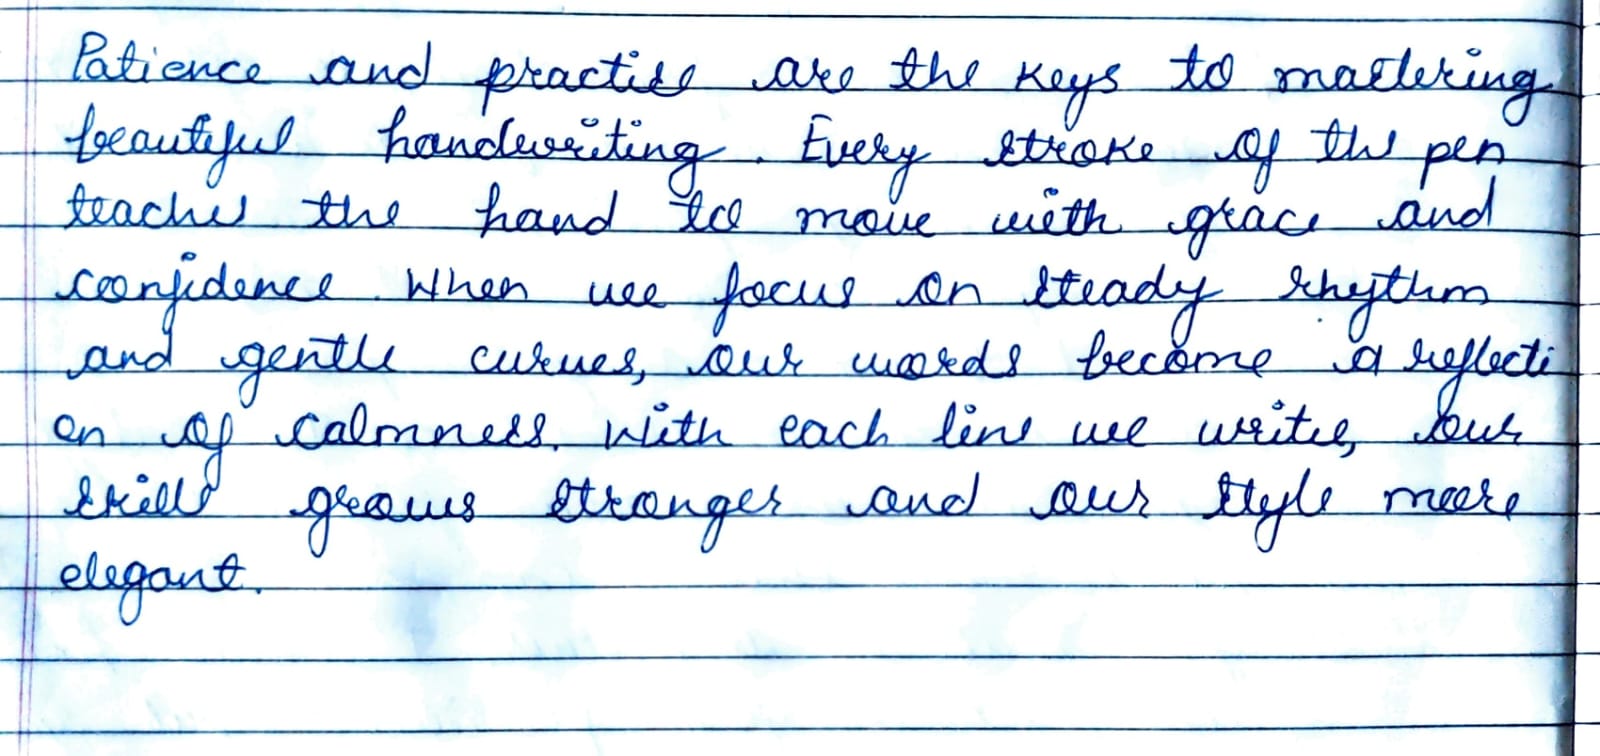 Patience and practise are the keys to mastering
beautiful handwriting. Every stroke of the pen
teaches the hand to move with grace and
confidence. When we focus on steady rhythm
and gentle curves, our words become a reflecti
on of calmness. With each line we write, our
skills grows stronger and our style more
elegant.